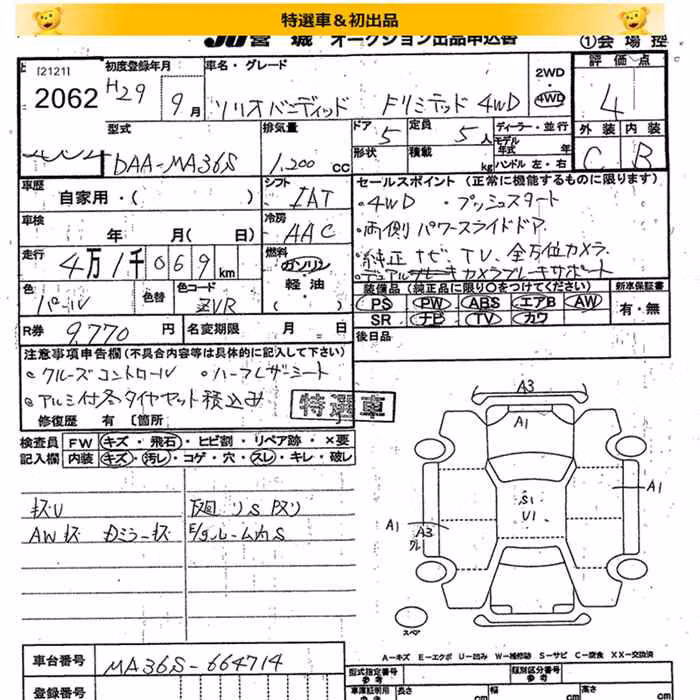 特選車＆初出品
JU宮城 オークション出品申込書 ①会場控
[2121]
2062
初度登録年月
H29 9月
車名・グレード
ソリオバンディッド Fリミテッド 4WD
2WD
・
4WD
評価点
4
型式
DAA-MA36S
排気量
1,200 CC
ドア 5
定員 5人
形状
積載 kg
ディーラー・並行
モデル年式 年
ハンドル 左・右
外装 内装
C B
車歴
自家用・( )
シフト
IAT
セールスポイント (正常に機能するものに限ります)
・4WD ・プッシュスタート
・両側パワースライドドア
・純正ナビ、TV、全方位カメラ
・デュアルカメラブレーキサポート
車検
年 月( 日)
冷房
AAC
走行
4万1千069km
燃料
ガソリン
軽油
( )
色
パール
色替
色コード
ZVR
装備品 (純正品に限り○をつけてください)
PS PW ABS エアB AW
SR ナビ TV カワ
新車保証書
有・無
R券 9,770円
名変期限 月 日
後日品
注意事項申告欄 (不具合内容等は具体的に記入して下さい)
・クルーズコントロール ・ハーフレザーシート
・アルミ付冬タイヤセット積込み
特選車
修復歴 有 〔箇所
検査員 FW キズ・飛石・ヒビ割・リペア跡・×要
記入欄 内装 キズ・汚レ・コゲ・穴・スレ・キレ・破レ
キズU
AWキズ Dミラーキズ
下廻りS
E/gルーム内S
A3
A1
S1
U1
A1
A1
A3
スペア
A−キズ E−エクボ U−凹み W−補修跡 S−サビ C−腐食 XX−交換済
車台番号
MA36S-664714
登録番号
型式指定番号
参考
類別区分番号
参考
車庫証明用
参考
長さ cm
幅 cm
高さ cm